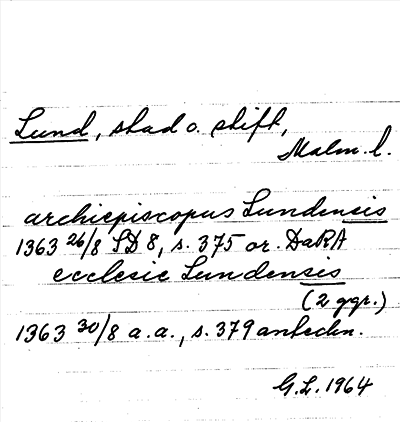 Lund, stad o. stift,
Malm. l.
archiepiscopus Lundensis
1363 26/8 SD 8, s. 375 or. DaRA
ecclesie Lundensis
(2 ggr.)
1363 30/8 a.a., s. 379 anteckn.
G.L. 1964